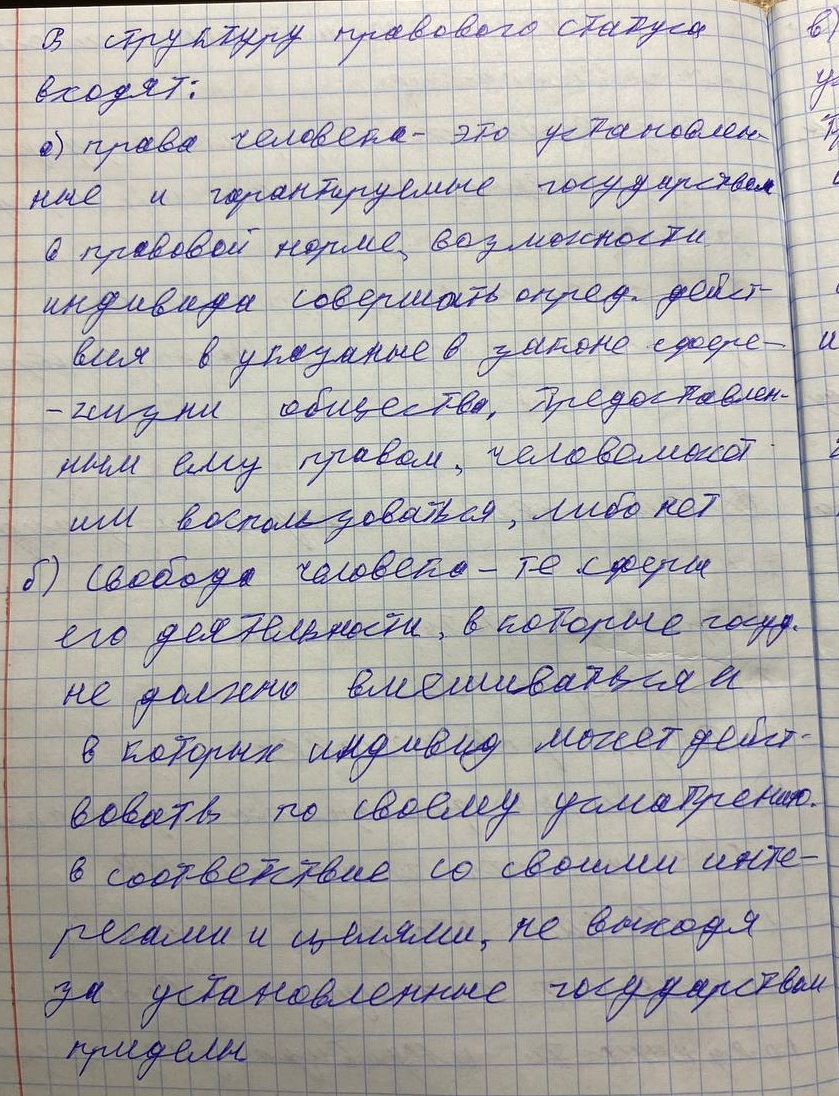 В структуру правового статуса
входят:
а) права человека - это установлен-
ные и гарантируемые государством
в правовой норме, возможности
индивида совершать опред. дейст-
вия в указаные в законе сфере-
-жизни общества, предоставлен-
ным ему правом, человек может
им воспользоваться, либо нет
б) свобода человека - те сферы
его деятельности, в которые госуд.
не должно вмешиваться и
в которых индивид может дейст-
вовать по своему усмотрению.
в соответствие со своими инте-
ресами и целями, не выходя
за установленные государством
приделы
в)